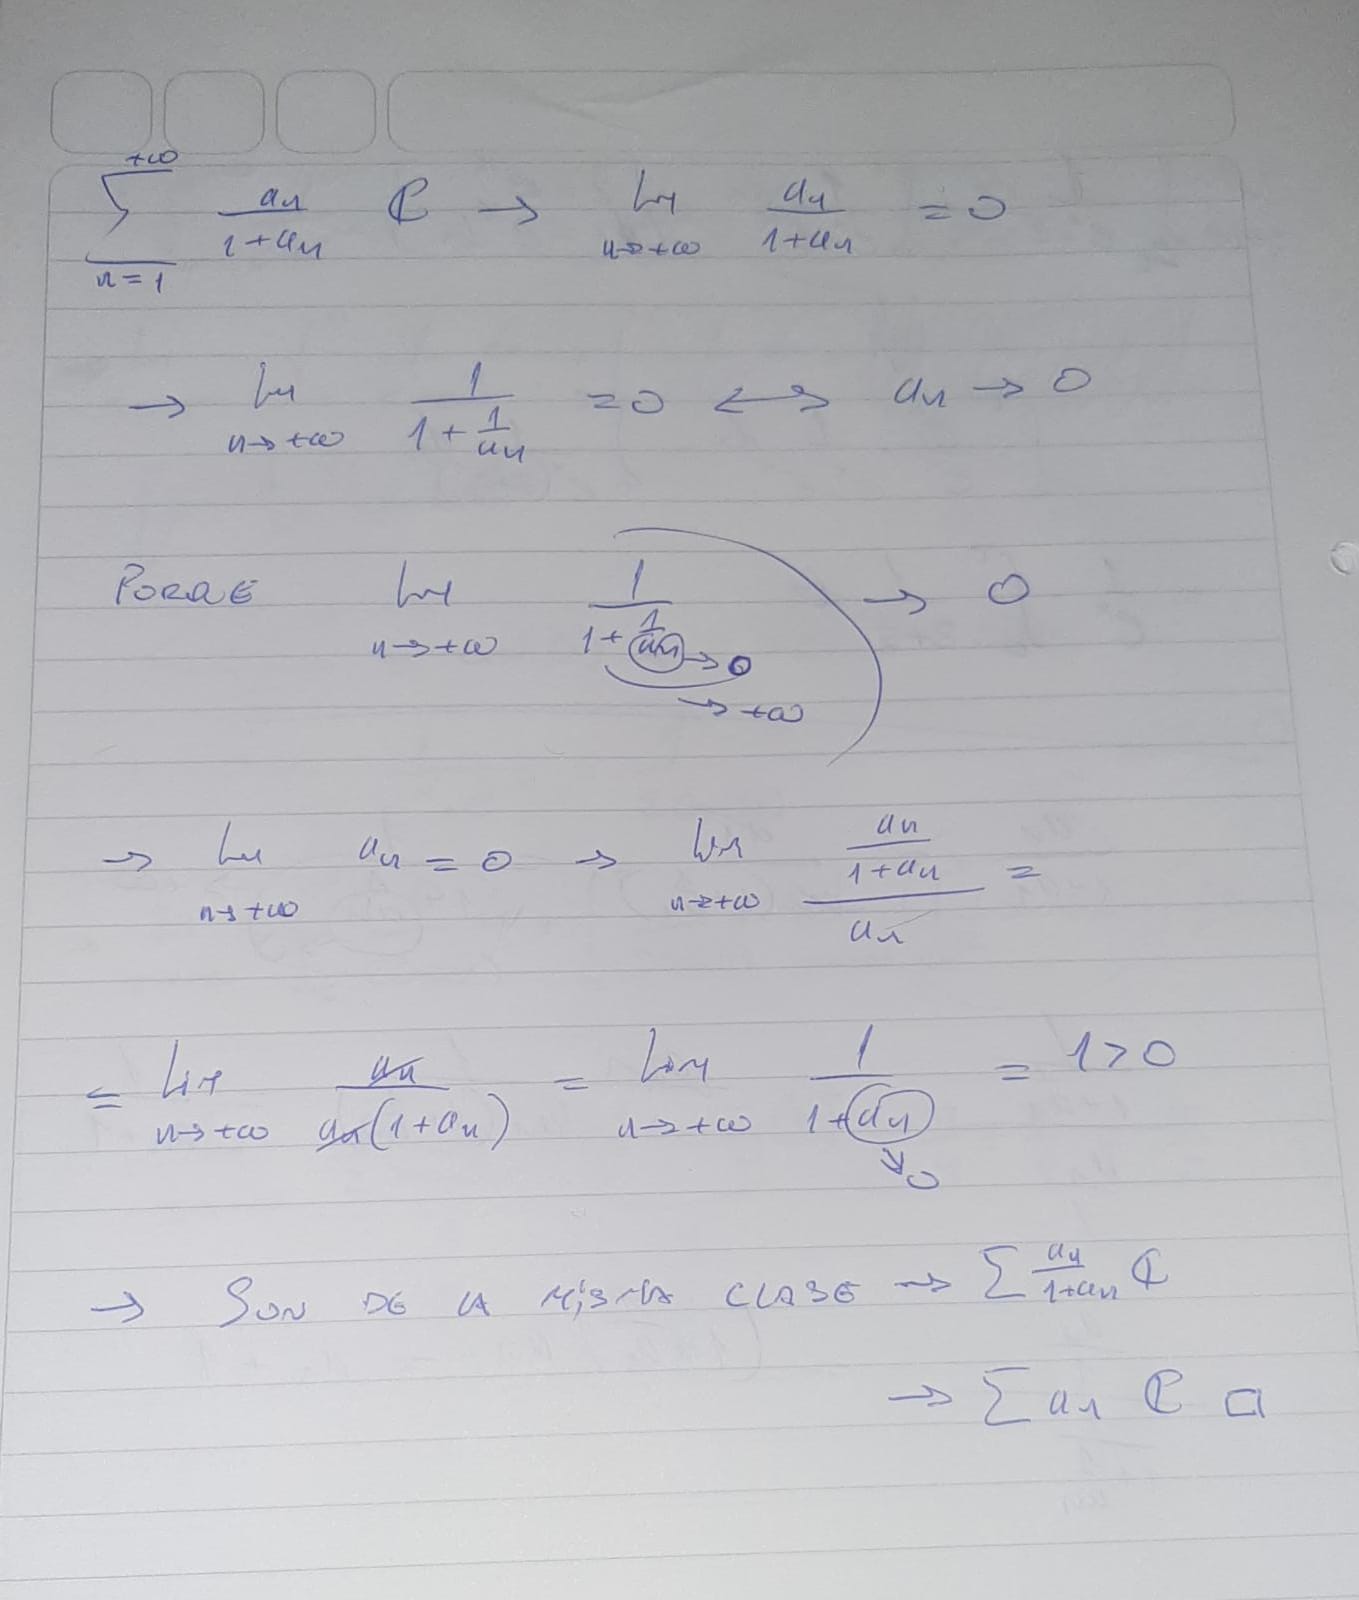 +∞
∑ an/(1+an) C → lim an/(1+an) = 0
n=1 n→+∞
→ lim 1/(1+1/an) = 0 ↔ an → 0
n→+∞
PORQUE lim 1/(1+1/an) → 0
n→+∞ → 0
→ +∞
→ lim an = 0 → lim (an/(1+an))/an =
n→+∞ n→+∞
= lim an/(an(1+an)) = lim 1/(1+an) = 1>0
n→+∞ n→+∞ ↓0
→ SON DE LA MISMA CLASE → ∑ an/(1+an) C
→ ∑ an C □